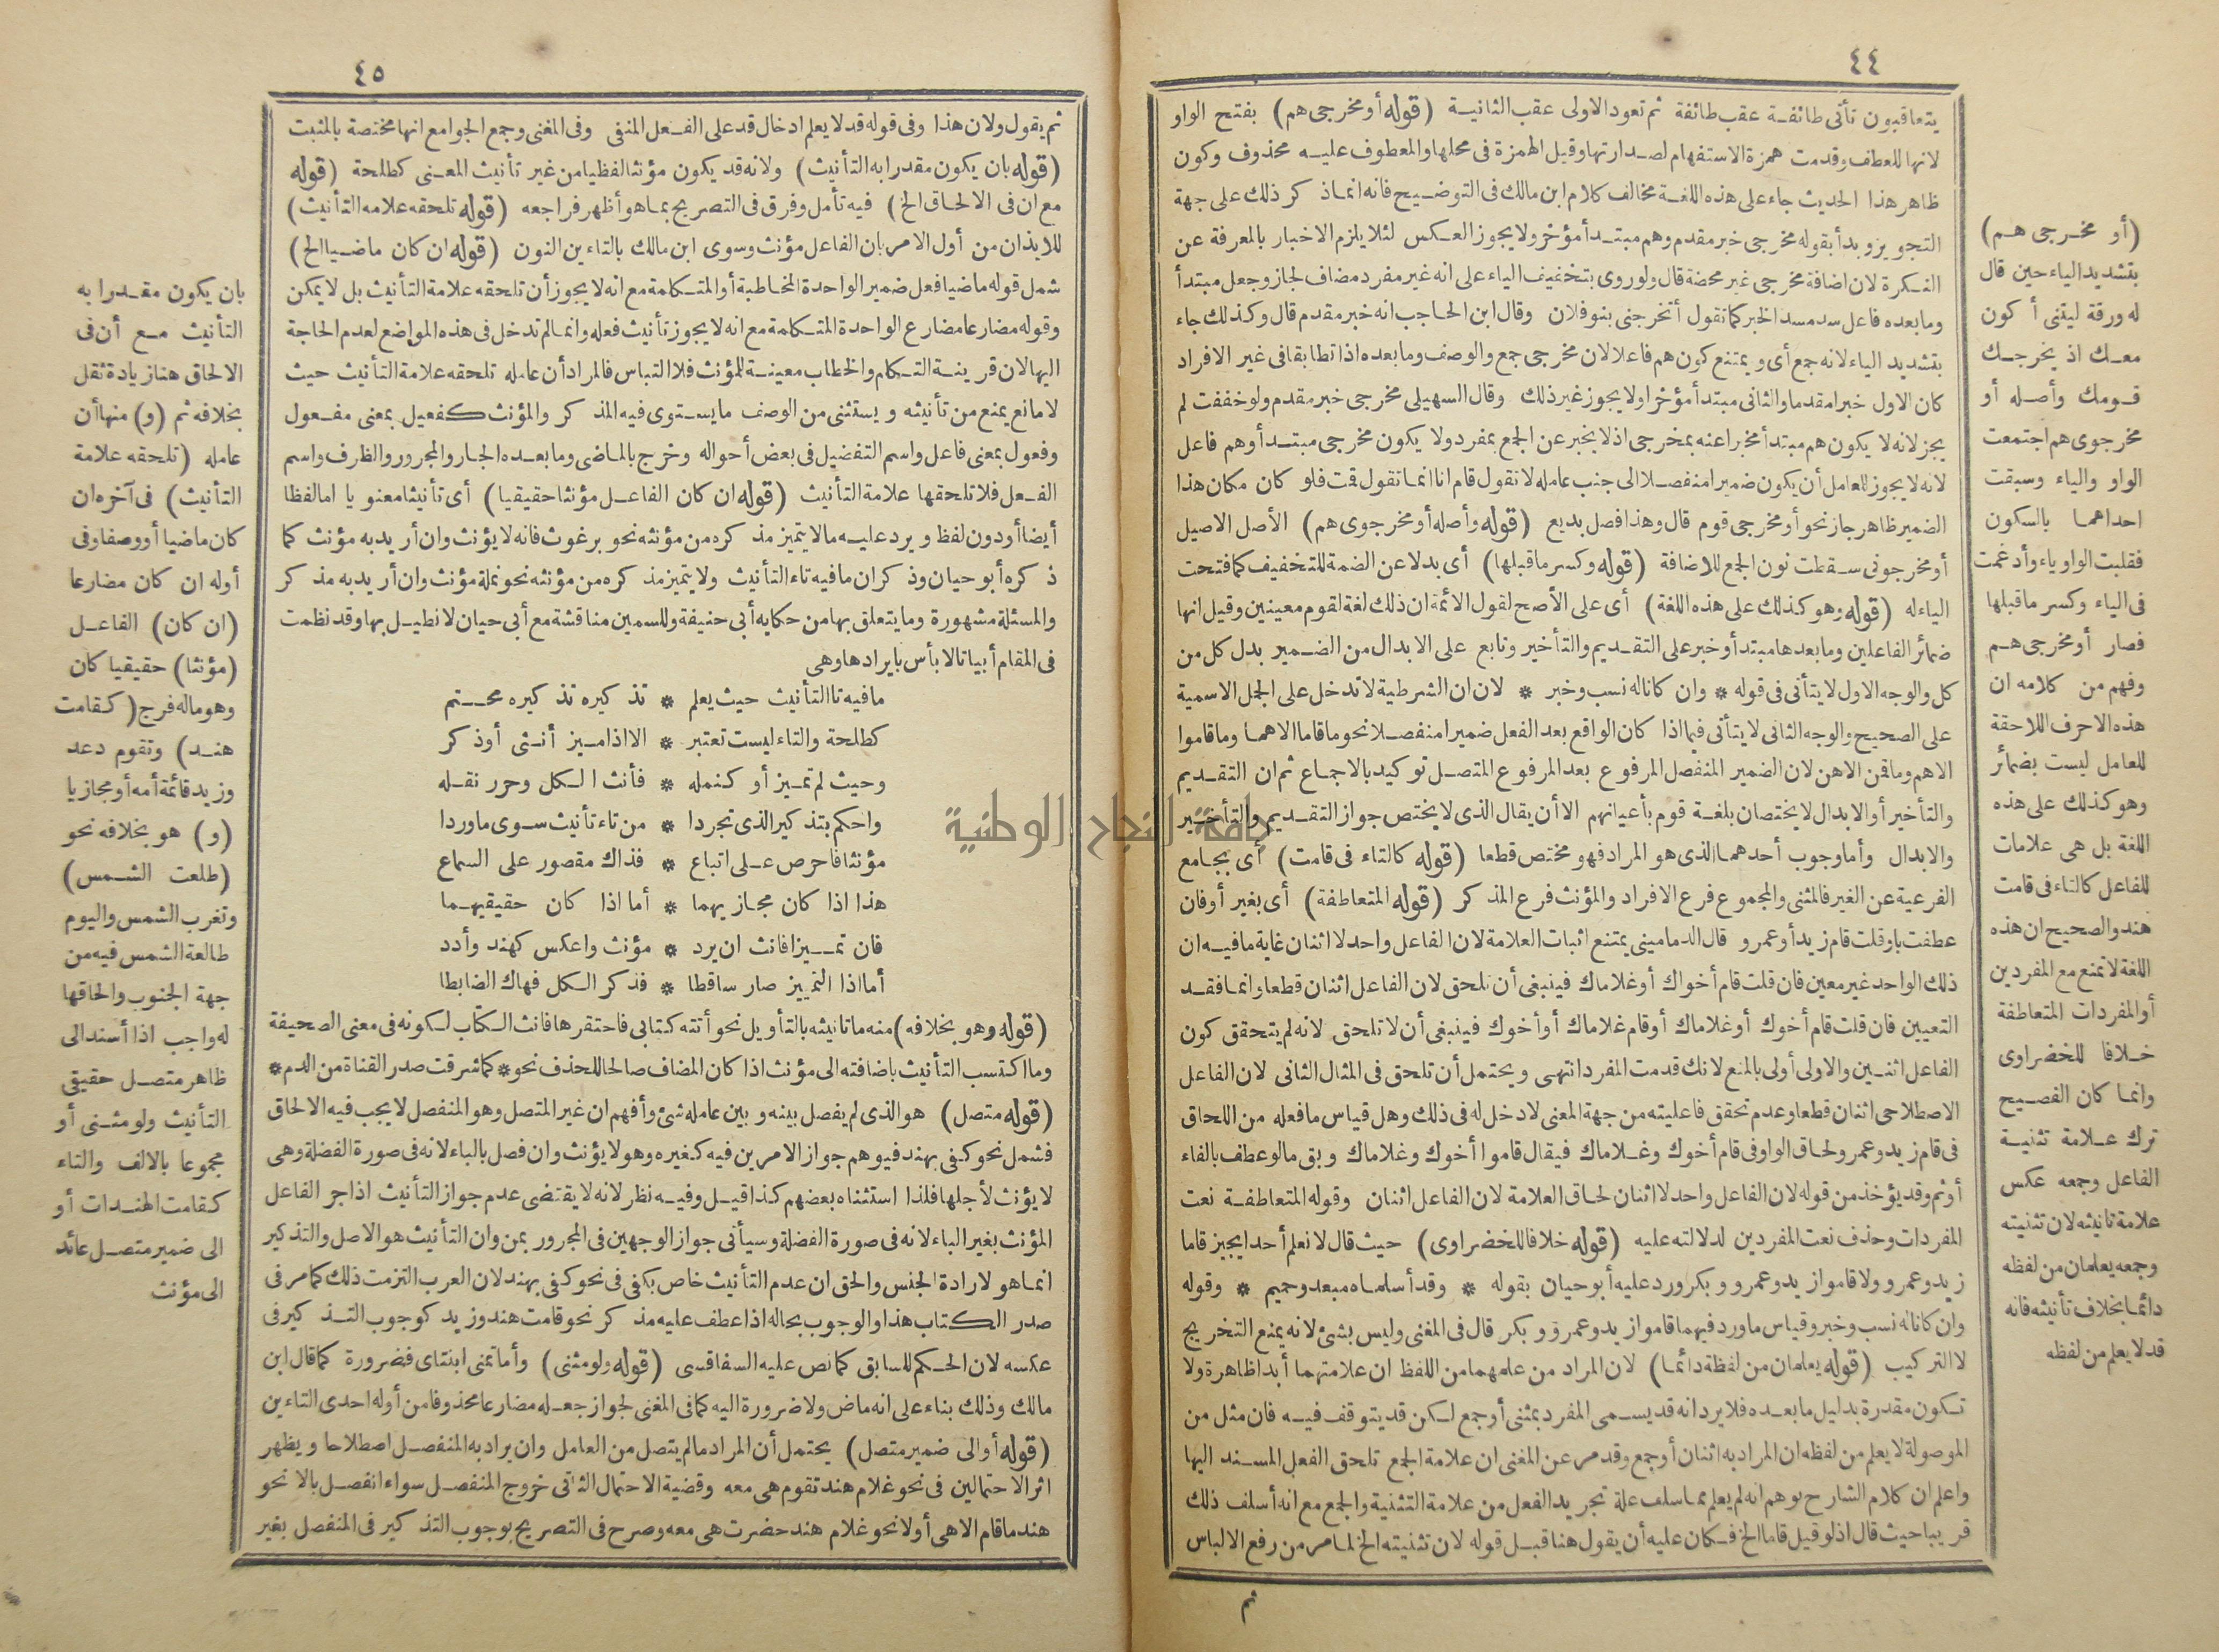 ٤٤
يتعاقبون تأتى طائفة عقب طائفة ثم تعود الاولى عقب الثانية (قوله أو مخرجى هم) بفتح الواو
لانها للعطف وقدمت همزة الاستفهام لصدارتها وقيل الهمزة فى محلها والمعطوف عليه محذوف وكون
ظاهر هذا الحديث جاء على هذه اللغة مخالف كلام ابن مالك فى التوضيح فانه انما ذكر ذلك على جهة
التجويز وبدأ بقوله مخرجى خبر مقدم وهم مبتدأ مؤخر ولا يجوز العكس لئلا يلزم الاخبار بالمعرفة عن
النكرة لان اضافة مخرجى غير محضة قال ولو روى بتخفيف الياء على انه غير مفرد مضاف لجاز وجعل مبتدأ
وما بعده فاعل سد مسد الخبر كما تقول أتخرجنى بنو فلان وقال ابن الحاجب انه خبر مقدم قال وكذلك جاء
بتشديد الياء لانه جمع أى ويمتنع كون هم فاعلا لان مخرجى جمع والوصف وما بعده اذا تطابقا فى غير الافراد
كان الاول خبرا مقدما والثانى مبتدأ مؤخرا ولا يجوز غير ذلك وقال السهيلى مخرجى خبر مقدم ولو خففت لم
يجز لانه لا يكون هم مبتدأ مخبرا عنه بمخرجى اذ لا يخبر عن الجمع بمفرد ولا يكون مخرجى مبتدأ وهم فاعل
لانه لا يجوز للعامل أن يكون ضميرا منفصلا الى جنب عامله لا تقول قام انا انما تقول قمت فلو كان مكان هذا
الضمير ظاهر جاز نحو أو مخرجى قوم قال وهذا فصل بديع (قوله وأصله أو مخرجوى هم) الأصل الاصيل
أو مخرجونى سقطت نون الجمع للاضافة (قوله وكسر ما قبلها) أى بدلا عن الضمة للتخفيف كما فتحت
الياء له (قوله وهو كذلك على هذه اللغة) أى على الأصح لقول الائمة ان ذلك لغة لقوم معينين وقيل انها
ضمائر الفاعلين وما بعدها مبتدأ وخبر على التقديم والتأخير وتابع على الابدال من الضمير بدل كل من
كل والوجه الاول لا يتأتى فى قوله * وان كانا له نسب وخبر * لان ان الشرطية لا تدخل على الجمل الاسمية
على الصحيح والوجه الثانى لا يتأتى فيما اذا كان الواقع بعد الفعل ضميرا منفصلا نحو ما قاما الا هما وما قاموا
الاهم وما قمن الاهن لان الضمير المنفصل المرفوع بعد المرفوع المتصل توكيد بالاجماع ثم ان التقديم
والتأخير أو الابدال لا يختصان بلغة قوم بأعيانهم الا أن يقال الذى لا يختص جواز التقديم والتأخير
والابدال وأما وجوب أحدهما الذى هو المراد فهو مختص قطعا (قوله كالتاء فى قامت) أى بجامع
الفرعية عن الغير فالمثنى والمجموع فرع الافراد والمؤنث فرع المذكر (قوله المتعاطفة) أى بغير أو فان
عطفت باو قلت قام زيد أو عمرو قال الدمامينى يمتنع اثبات العلامة لان الفاعل واحد لا اثنان غاية ما فيه ان
ذلك الواحد غير معين فان قلت قام أخواك أو غلاماك فينبغى أن تلحق لان الفاعل اثنان قطعا وانما فقد
التعيين فان قلت قام أخوك أو غلاماك أو قام غلاماك أو أخوك فينبغى أن لا تلحق لانه لم يتحقق كون
الفاعل اثنين والاولى أولى بالمنع لانك قدمت المفرد انتهى ويحتمل أن تلحق فى المثال الثانى لان الفاعل
الاصطلاحى اثنان قطعا وعدم تحقق فاعليته من جهة المعنى لا دخل له فى ذلك وهل قياس ما فعله من اللحاق
فى قام زيد وعمرو لحاق الواو فى قام أخوك وغلاماك فيقال قاموا أخوك وغلاماك وبقى ما لو عطف بالفاء
أو ثم وقد يؤخذ من قوله لان الفاعل واحد لا اثنان لحاق العلامة لان الفاعل اثنان وقوله المتعاطفة نعت
المفردات وحذف نعت المفردين لدلالته عليه (قوله خلافا للخضراوى) حيث قال لا نعلم أحدا يجيز قاما
زيد وعمرو ولا قاموا زيد وعمرو وبكر ورد عليه أبو حيان بقوله * وقد أسلماه مبعد وحميم * وقوله
وان كانا له نسب وخبر وقياس ما ورد فيهما قاموا زيد وعمرو وبكر قال فى المغنى وليس بشئ لانه يمنع التخريج
لا التركيب (قوله يعلمان من لفظه دائما) لان المراد من علمهما من اللفظ ان علامتهما أبدا ظاهرة ولا
تكون مقدرة بدليل ما بعده فلا يرد انه قد يسمى المفرد بمثنى أو جمع لكن قد يتوقف فيه فان مثل من
الموصولة لا يعلم من لفظه ان المراد به اثنان أو جمع وقد مر عن المغنى ان علامة الجمع تلحق الفعل المسند اليها
واعلم ان كلام الشارح يوهم انه لم يعلم مما سلف علة تجريد الفعل من علامة التثنية والجمع مع انه أسلف ذلك
قريبا حيث قال اذ لو قيل قاما الخ فكان عليه أن يقول هنا قبل قوله لان تثنيته الخ لما مر من رفع الالباس
ثم
(أو مخرجى هم)
بتشديد الياء حين قال
له ورقة ليتنى أكون
معك اذ يخرجك
قومك وأصله أو
مخرجوى هم اجتمعت
الواو والياء وسبقت
احداهما بالسكون
فقلبت الواو ياء وأدغمت
فى الياء وكسر ما قبلها
فصار أو مخرجى هم
وفهم من كلامه ان
هذه الاحرف اللاحقة
للعامل ليست بضمائر
وهو كذلك على هذه
اللغة بل هى علامات
للفاعل كالتاء فى قامت
هند والصحيح ان هذه
اللغة لا تمنع مع المفردين
أو المفردات المتعاطفة
خلافا للخضراوى
وانما كان الفصيح
ترك علامة تثنية
الفاعل وجمعه عكس
علامة تانيثه لان تثنيته
وجمعه يعلمان من لفظه
دائما بخلاف تأنيثه فانه
قد لا يعلم من لفظه
٤٥
ثم يقول ولان هذا وفى قوله قد لا يعلم ادخال قد على الفعل المنفى وفى المغنى وجمع الجوامع انها مختصة بالمثبت
(قوله بان يكون مقدرا به التأنيث) ولانه قد يكون مؤنثا لفظيا من غير تأنيث المعنى كطلحة (قوله
مع ان فى الالحاق الخ) فيه تأمل وفرق فى التصريح بما هو أظهر فراجعه (قوله تلحقه علامة التأنيث)
للايذان من أول الامر بان الفاعل مؤنث وسوى ابن مالك بالتاء بن النون (قوله ان كان ماضيا الخ)
شمل قوله ماضيا فعل ضمير الواحدة المخاطبة أو المتكلمة مع انه لا يجوز أن تلحقه علامة التأنيث بل لا يمكن
وقوله مضارعا مضارع الواحدة المتكلمة مع انه لا يجوز تأنيث فعله وانما لم تدخل فى هذه المواضع لعدم الحاجة
اليها لان قرينة التكلم والخطاب معينة للمؤنث فلا التباس فالمراد أن عامله تلحقه علامة التأنيث حيث
لا مانع يمنع من تأنيثه ويستثنى من الوصف ما يستوى فيه المذكر والمؤنث كفعيل بمعنى مفعول
وفعول بمعنى فاعل واسم التفضيل فى بعض أحواله وخرج بالماضى وما بعده الجار والمجرور والظرف واسم
الفعل فلا تلحقها علامة التأنيث (قوله ان كان الفاعل مؤنثا حقيقيا) أى تأنيثا معنويا اما لفظا
أيضا أو دون لفظ ويرد عليه ما لا يتميز مذكره من مؤنثه نحو برغوث فانه لا يؤنث وان أريد به مؤنث كما
ذكره أبو حيان وذكر ان ما فيه تاء التأنيث ولا يتميز مذكره من مؤنثه نحو نملة مؤنث وان أريد به مذكر
والمسئلة مشهورة وما يتعلق بها من حكاية أبى حنيفة وللسمين مناقشة مع أبى حيان لا نطيل بها وقد نظمت
فى المقام أبياتا لا بأس بايرادها وهى
ما فيه تا التأنيث حيث يعلم * تذكيره تذكيره محتم
كطلحة والتاء ليست تعتبر * الا اذا ميز أنثى أو ذكر
وحيث لم تميز أو كنمله * فأنث الكل وحرر نقله
واحكم بتذكير الذى تجردا * من تاء تأنيث سوى ما وردا
مؤنثا فاحرص على اتباع * فذاك مقصور على السماع
هذا اذا كان مجازيهما * أما اذا كان حقيقيهما
فان تميزا فانث ان يرد * مؤنث واعكس كهند وأدد
أما اذا التمييز صار ساقطا * فذكر الكل فهاك الضابطا
(قوله وهو بخلافه) منه ما تانيثه بالتأويل نحو أتته كتابى فاحتقرها فانث الكتاب لكونه فى معنى الصحيفة
وما اكتسب التأنيث باضافته الى مؤنث اذا كان المضاف صالحا للحذف نحو * كما شرقت صدر القناة من الدم *
(قوله متصل) هو الذى لم يفصل بينه وبين عامله شئ وأفهم ان غير المتصل وهو المنفصل لا يجب فيه الالحاق
فشمل نحو كفى بهند فيوهم جواز الامرين فيه كغيره وهو لا يؤنث وان فصل بالباء لانه فى صورة الفضلة وهى
لا يؤنث لأجلها فلذا استثناه بعضهم كذا قيل وفيه نظر لانه لا يقتضى عدم جواز التأنيث اذا جر الفاعل
المؤنث بغير الباء لانه فى صورة الفضلة وسيأتى جواز الوجهين فى المجرور بمن وان التأنيث هو الاصل والتذكير
انما هو لارادة الجنس والحق ان عدم التأنيث خاص بكفى فى نحو كفى بهند لان العرب التزمت ذلك كما مر فى
صدر الكتاب هذا والوجوب بحاله اذا عطف عليه مذكر نحو قامت هند وزيد كوجوب التذكير فى
عكسه لان الحكم للسابق كما نص عليه السفاقسى (قوله ولو مثنى) وأما تمنى ابنتاى فضرورة كما قال ابن
مالك وذلك بناء على انه ماض ولا ضرورة اليه كما فى المغنى لجواز جعله مضارعا محذوفا من أوله احدى التاءين
(قوله أو الى ضمير متصل) يحتمل أن المراد ما لم يتصل من العامل وان يراد به المنفصل اصطلاحا ويظهر
اثر الاحتمالين فى نحو غلام هند تقوم هى معه وقضية الاحتمال الثانى خروج المنفصل سواء انفصل بالا نحو
هند ما قام الا هى أو لا نحو غلام هند حضرت هى معه وصرح فى التصريح بوجوب التذكير فى المنفصل بغير
بان يكون مقدرا به
التأنيث مع أن فى
الالحاق هنا زيادة ثقل
بخلافه ثم (و) منها أن
عامله (تلحقه علامة
التأنيث) فى آخره ان
كان ماضيا أو وصفا وفى
أوله ان كان مضارعا
(ان كان) الفاعل
(مؤنثا) حقيقيا كان
وهو ماله فرج (كقامت
هند) وتقوم دعد
وزيد قائمة أمه أو مجازيا
(و) هو بخلافه نحو
(طلعت الشمس)
وتغرب الشمس واليوم
طالعة الشمس فيه من
جهة الجنوب والحاقها
له واجب اذا أسند الى
ظاهر متصل حقيقى
التأنيث ولو مثنى أو
مجموعا بالالف والتاء
كقامت الهندات أو
الى ضمير متصل عائد
الى مؤنث
جامعة النجاح الوطنية